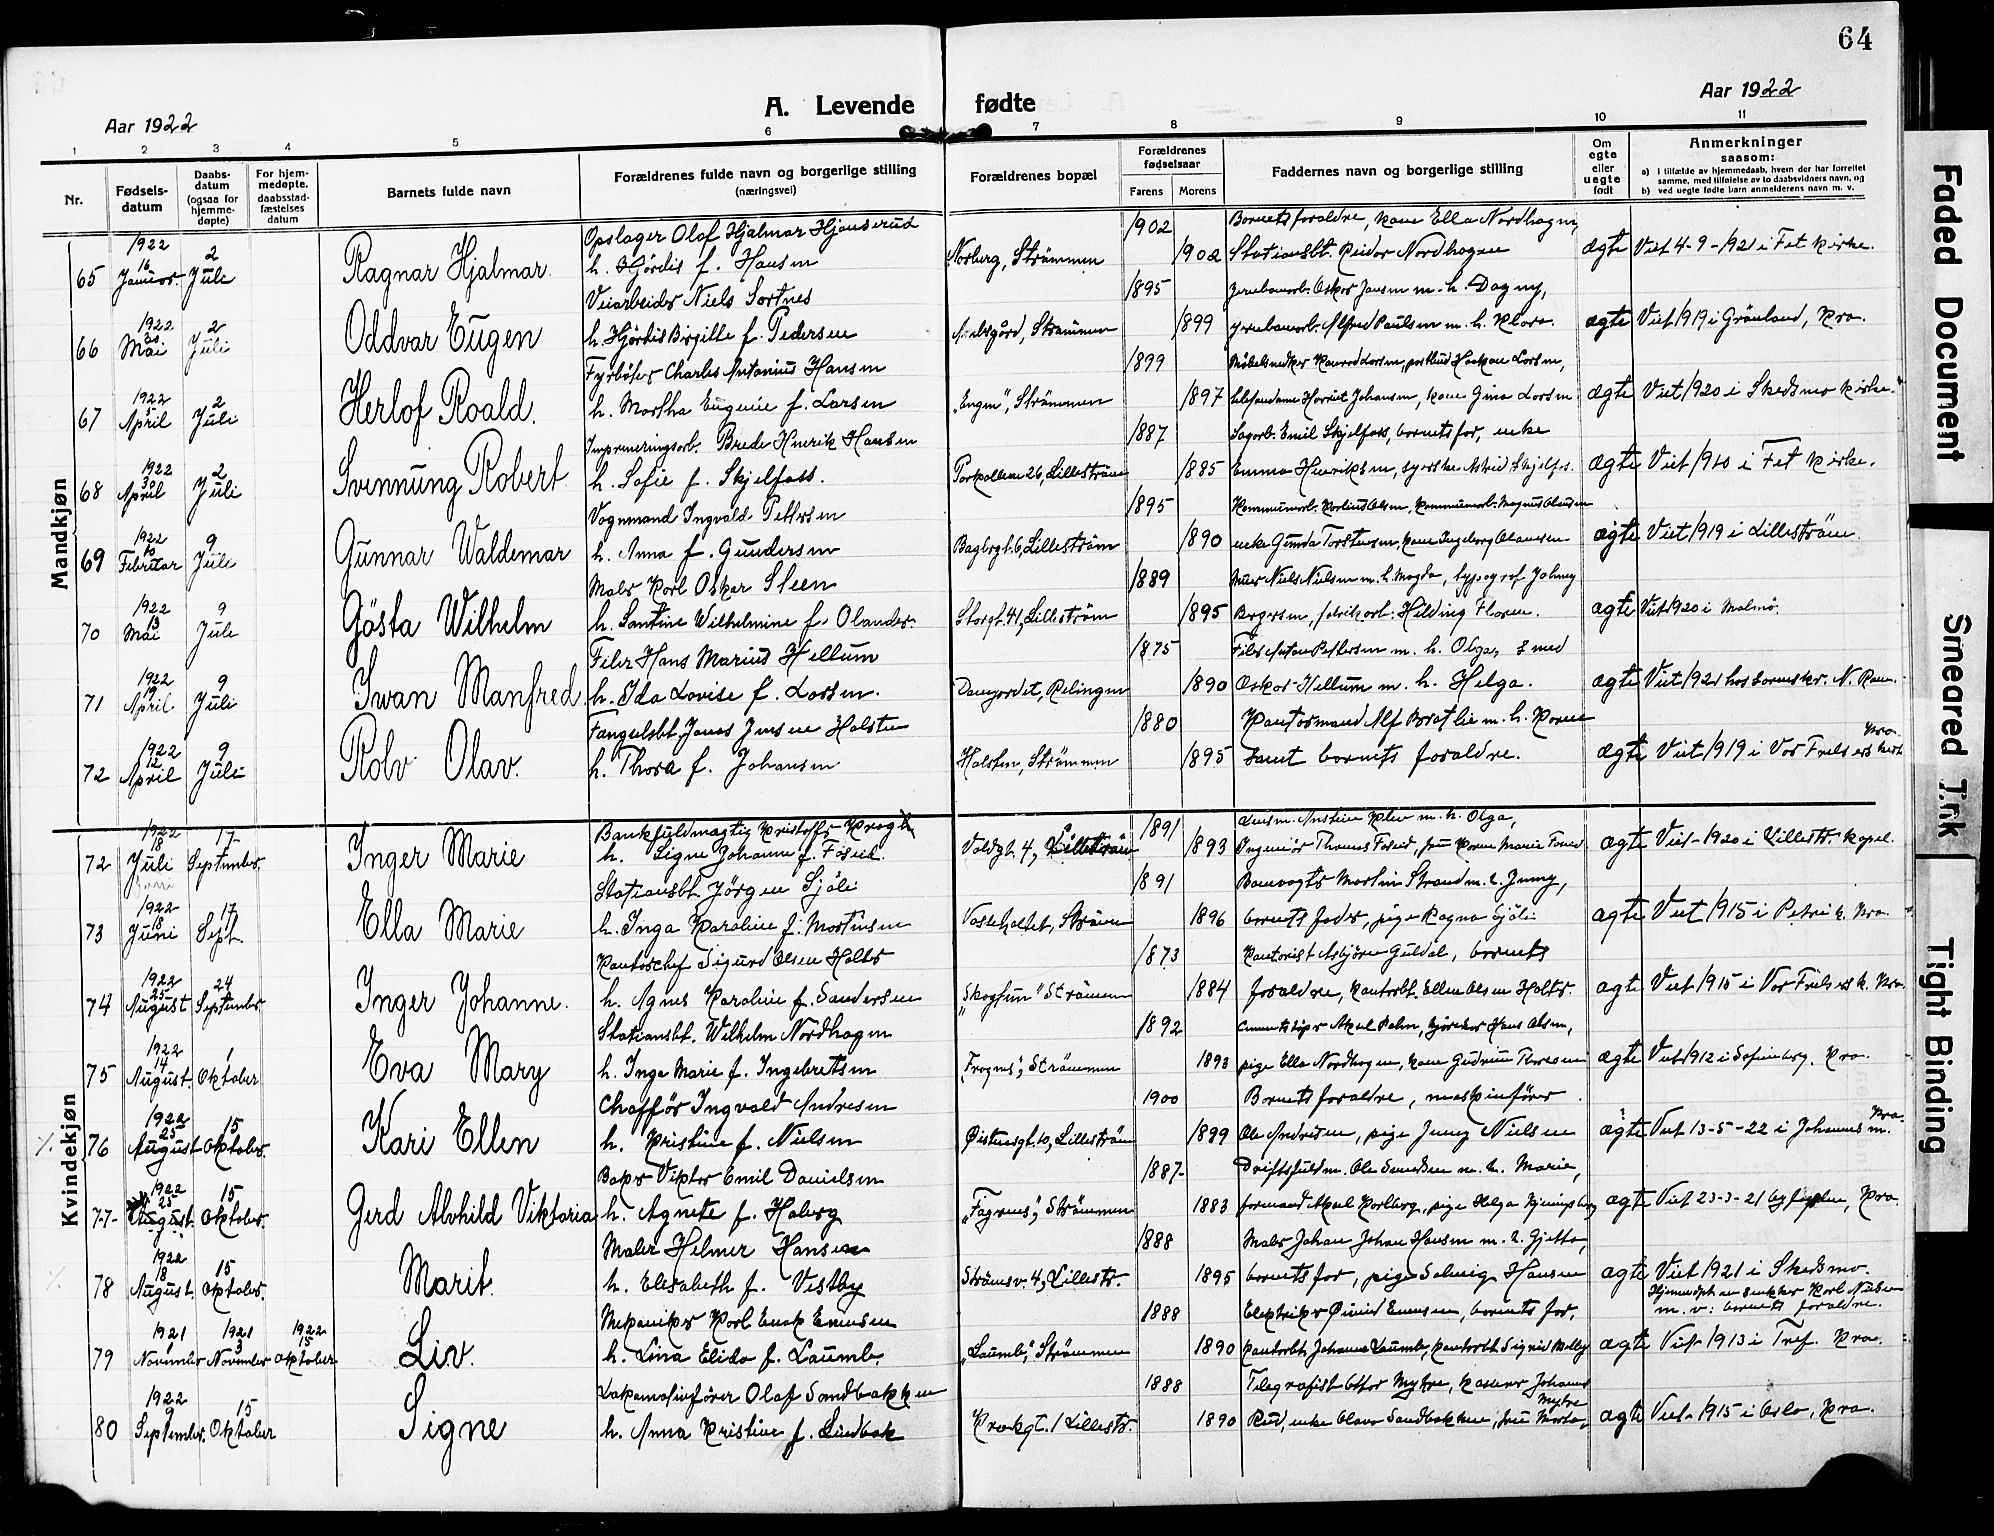 64
Aar 1922
A. Levende fødte
Aar 1922
1 2 3 4 5 6 7 8 9 10 11
Nr.
Fødsels-datum
Daabs-datum (ogsaa for hjemme-døpte)
For hjem-medøpte, daabsstad-fæstelses datum
Barnets fulde navn
Forældrenes fulde navn og borgerlige stilling (næringsvei)
Forældrenes bopæl
Forældrenes fødselsaar
Farens Morens
Faddernes navn og borgerlige stilling
Om egte eller uegte født
Anmerkninger saasom:
a) i tilfælde av hjemmedaab, hvem der har forrettet samme, med tilføielse av to daabsvidners navn, og
b) ved uegte fødte barn anmelderens navn m. v.
Mandkjøn
65 1922 16 Januar. 2 Juli Ragnar Hjalmar. Opslager Olaf Hjalmar Hjanserud 1902 Barnets foraldre, kone Ella Nordhagen,
h. Hjørdis f. Hansen Norberg, Strömmen 1902 Stationsbt. Reidar Nordhagen ægte Viet 4-9-1921 i Fet kirke.
66 1922 20 Mai 2 Juli Oddvar Eugen Veiarbeider Niels Sortnes 1895 Jernbanearb. Oskar Jansen m. h. Dagny,
h. Hjördis Birgitte f. Pedersen Strømmen 1899 jernbanearb. Alfred Paulsen m. h. Klara. ægte Viet 1919 i Grönland, Kra.
67 1922 5 April 2 Juli Herlof Roald. Fyrböter Charles Antonius Hansen 1899 Larsen,
h. Martha Eugenie f. Larsen "Engen", Strömmen 1897 Harriet Johansen, kone Gina Larsen ægte Viet 1920 i Skedsmo kirke.
68 1922 30 April 2 Juli Svennung Robert Impregneringsarb. Brede Henrik Hansen 1887 Sagarb. Emil Skjelfoss, barnets far, enke
h. Sofie f. Skjelfoss. Parkalleen 26, Lilleström 1885 Emma Henriksen, syerske Astrid Skjelfos. ægte Viet 1910 i Fet kirke.
69 1922 10 Februar 9 Juli Gunnar Waldemar Vognmand Ingvald Pettersen 1895 Kommunearb. Karlius Olsen, kommunearb. Magnus Olausen
h. Anna f. Gundersen 6, Lilleström 1890 enke Gunda Torstensen, kone Ingeborg Olaussen ægte Viet 1919 i Lilleström.
70 1922 13 Mai 9 Juli Gösta Wilhelm Maler Karl Oskar Steen 1889 Murer Niels Nielsen m. h. Magda, typograf Johnny
h. Santine Wilhelmine f. Olander. Storgt. 41, Lilleström 1895 Bergersen, fabrikarb. Hilding Floren. ægte Viet 1920 i Malmö.
71 1922 19 April 9 Juli Iwan Manfred. Filer Hans Marius Hellum 1875 Filer Anton Pettersen m. h. Olga, Smed
h. Ida Lovise f. Larsen. Damjordet, Rælingen 1890 Oskar Hellum m. h. Helga. ægte Viet 1921 hos sorenskr. N. Rom.
72 1922 12 April 9 Juli Rolv Olav. Fængselsbt. Jonas Jensen Holsten 1880 Kontormand Alf Bratlie m. h. Karen
h. Thora f. Johansen Holsten, Strömmen 1895 samt barnets foraldre. ægte Viet 1919 i Vor Frelsers kirke Kra.
Kvindekjøn
72 1922 18 Juli 17 September. Inger Marie Bankfuldmægtig Kristoffer Krogh 1891 m. h. Olga,
h. Signe Johanne f. Foseid. Voldgt. 4, Lilleström 1893 Ingeniör Thomas Foseid, fru Karen Marie Foseid ægte Viet 1920 i Lillestr. kapel.
73 1922 18 Juni 17 Sept. Ella Marie Stationsbt. Jörgen Sjöli 1891 Banevogter Martin Strand m. h. Jenny,
h. Inga Karoline f. Mortensen Strömen 1896 barnets fader, pige Ragna Sjöli ægte Viet 1915 i Petri k. Kra.
74 1922 25 August 24 September Inger Johanne. Kontorchef Sigurd Olsen Holter 1873 Kontorist Asbjörn Guldal, barnets
h. Agnes Karoline f. Sandersen "Skoghem" Strömmen 1884 foraldre, kontorbt. Ellen Olsen Holter. ægte Viet 1915 i Vor Frelsers k. Kra.
75 1922 14 August 1 Oktober Eva Mary Stationsbt. Wilhelm Nordhagen 1892 Aksel Palm, Hans Olsen,
h. Inga Marie f. Ingebretsen "Frognes", Strömmen 1893 pige Ella Nordhagen, kone Gudrun Thoresen ægte Viet 1912 i Sofienberg. Kra.
76 1922 25 August 15 Oktober. Kari Ellen Chafför Ingvald Andresen 1900 Barnets foraldre, maskinförer
h. Kristine f. Nielsen Østensgt. 10, Lilleström 1899 Ole Andresen, pige Jenny Nielsen ægte Viet 13-5-22 i Johannes m. Kra.
77 1922 25 August 15 Oktober. Gerd Alvhild Viktoria Baker Viktor Emil Danielsen 1887 Driftsfuldm. Ole m. h. Marie,
h. Agnete f. Hoberg "Fagernes", Strömmen 1883 formand Aksel Karlberg, pige Helga ægte Viet 23-3-21 byfogden, Kra.
78 1922 18 August. 15 Oktober. Marit. Maler Helmer Hansen 1888 Maler Johan Johan Hansen m. h. Gjetta,
h. Elisabeth f. Vestby Strømsv. 4, Lillestr. 1895 barnets far, pige Solveig Hansen ægte Viet 1921 i Skedsmo.
79 1921 1 November 1921 3 November 1922 15 Oktober Liv. Mekaniker Karl Enok Evensen 1888 Elektriker Øivind Evensen, barnets far,
h. Lina Elida f. Laumb. "Laumb", Strömmen 1890 kontorbt. Johanne Laumb, kontorbt Sigrid Melby ægte Viet 1913 i Tref. Kra.
Hjemmedøpt av Karl Nielsen m. v: barnets foraldre.
80 1922 5 September. 15 Oktober Signe Lokomotivförer Olaf Sandbakken 1888 Telegrafist Otter Myhre, kasserer Johannes
h. Anna Kristine f. Lindbak Kirkegt. 1 Lillestr. 1890 Rud, enke Olava Sandbakken, fru Marta Myhre, ægte Viet 1915 i Oslo, Kra.
Faded Document
Smeared Ink
Tight Binding